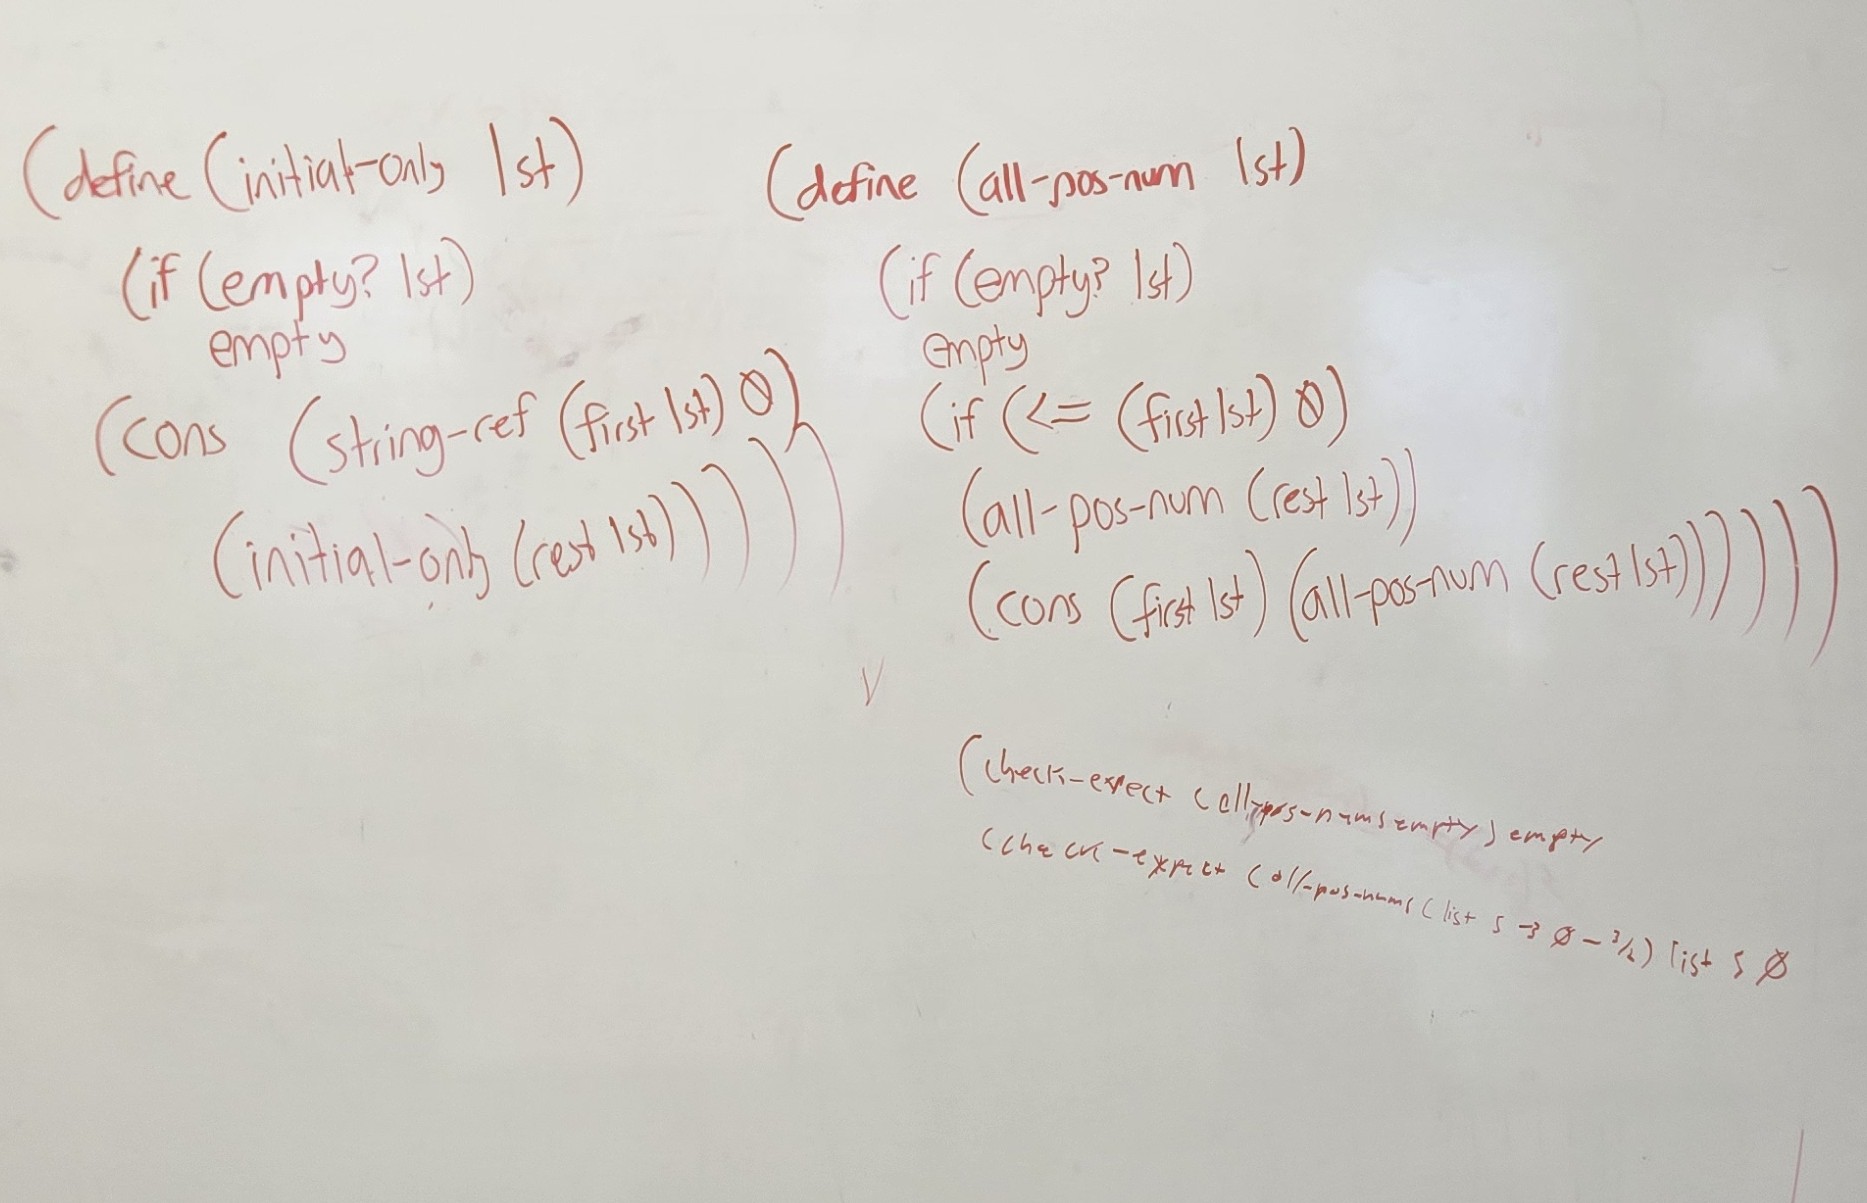 (define (initial-only lst)
(if (empty? lst)
empty
(cons (string-ref (first lst) 0)
(initial-only (rest lst))))))
(define (all-pos-num lst)
(if (empty? lst)
empty
(if (<= (first lst) 0)
(all-pos-num (rest lst))
(cons (first lst) (all-pos-num (rest lst)))))))
(check-expect (all-pos-nums empty) empty
(check-expect (all-pos-nums (list 5 -3 0 - 3/2) list 5 0